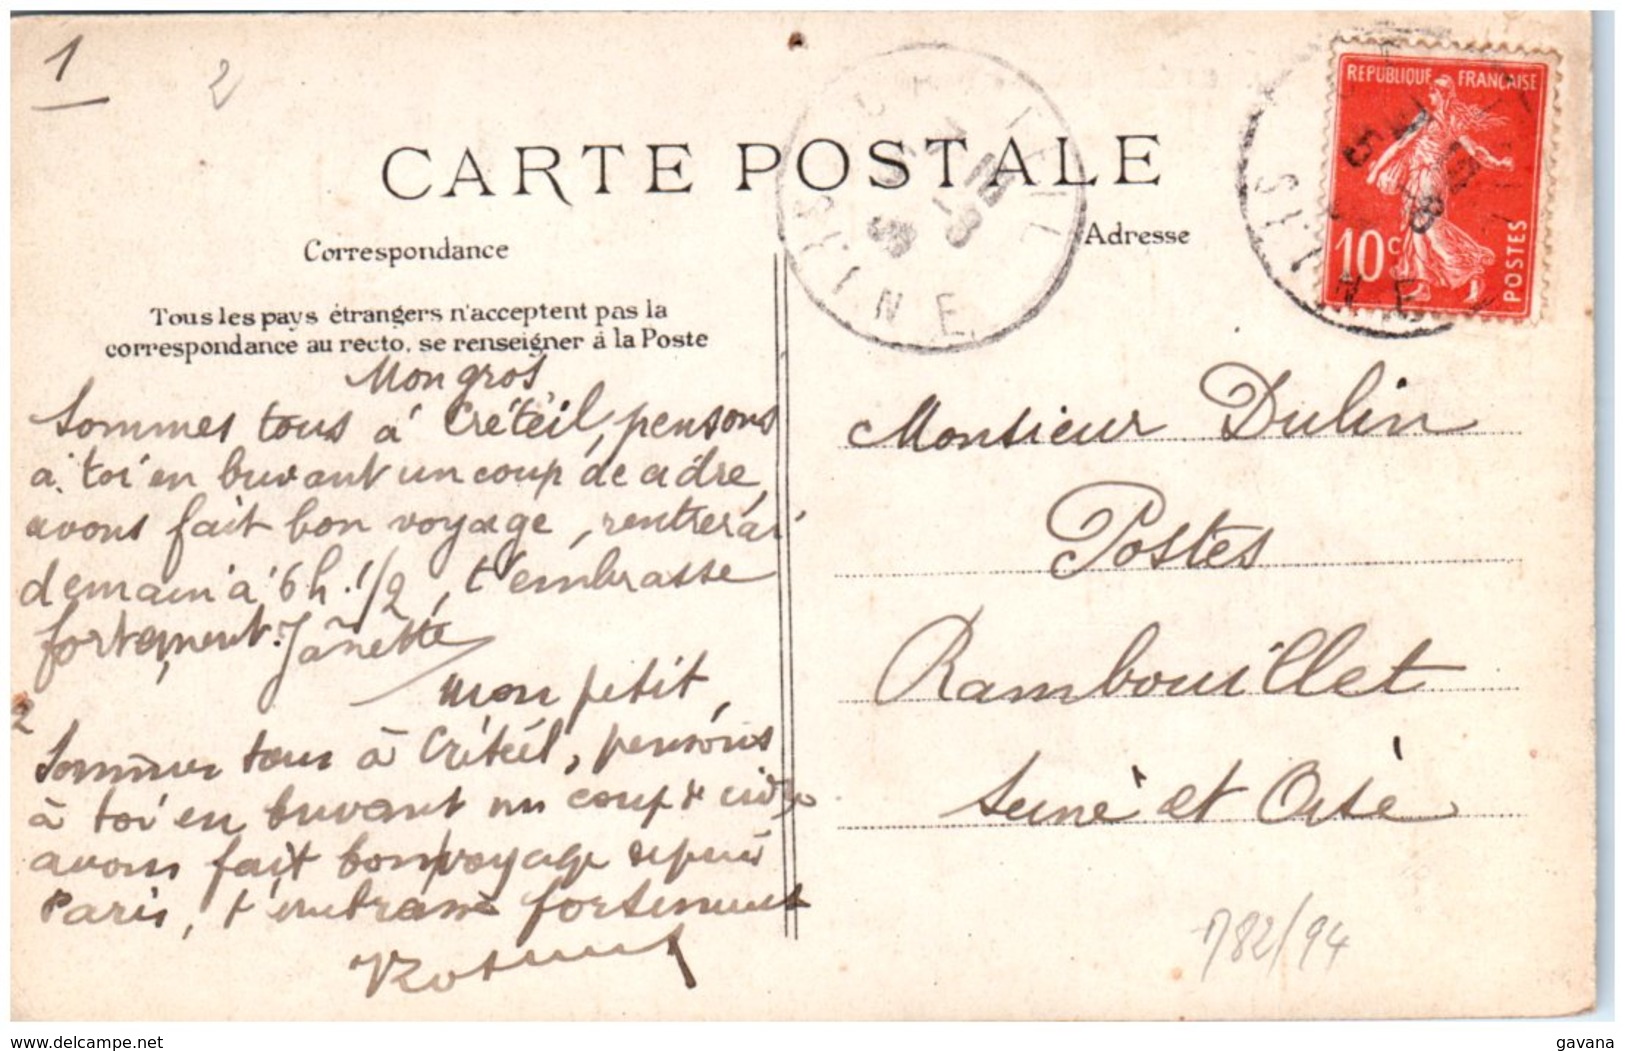 1
2
CARTE POSTALE
Correspondance
Adresse
Tous les pays étrangers n'acceptent pas la
correspondance au recto, se renseigner à la Poste
REPUBLIQUE FRANÇAISE
10c
POSTES
CRETEIL
SEINE
SEINE
Mon gros
Sommes tous à Créteil, pensons
à toi en buvant un coup de cidre,
avons fait bon voyage, rentrerai
demain à 6h.1/2, t'embrasse
fortement. Janette
2
mon petit,
Sommes tous à Créteil, pensons
à toi en buvant un coup de cidre
avons fait bon voyage depuis
Paris, t'embrasse fortement
Monsieur Dulin
Postes
Rambouillet
Seine et Oise
782/94
www.delcampe.net
gavana